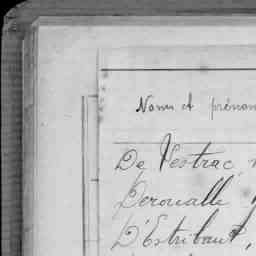 Noms et prénom
De Vestrac
Deroualle
D'Estribaut,